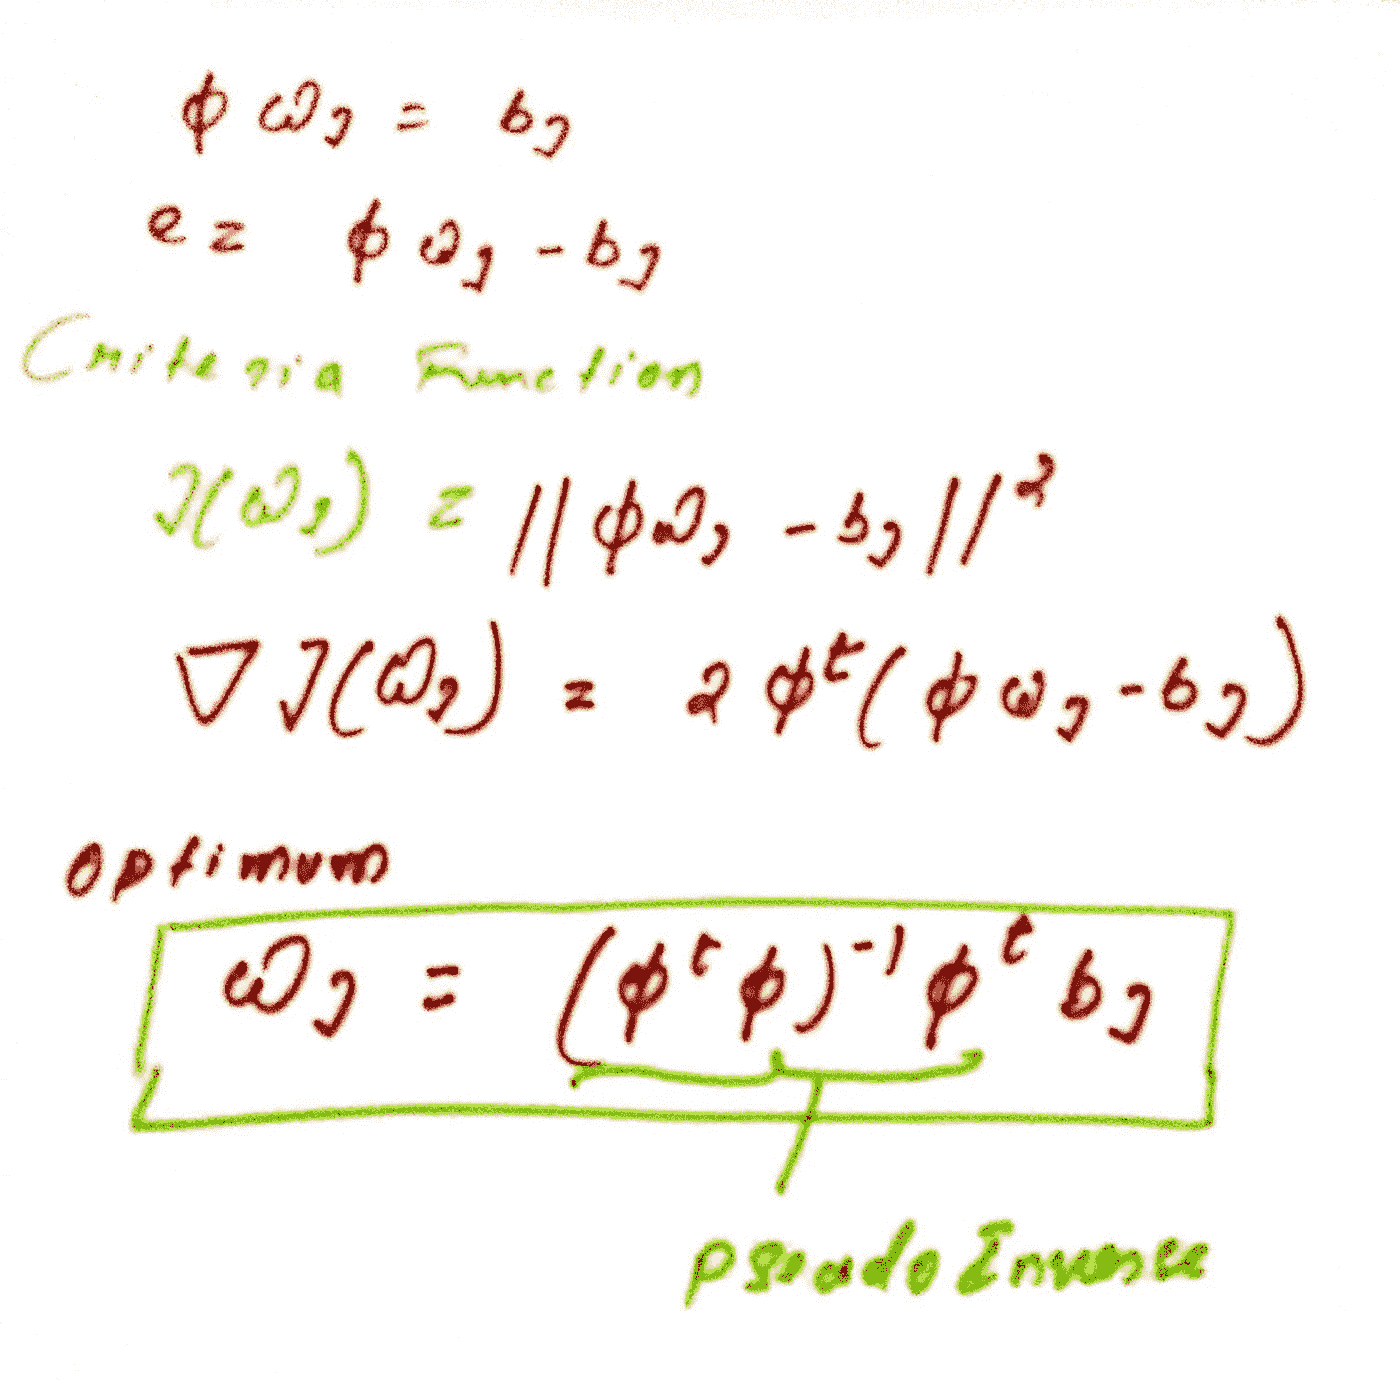 ϕ ω_j = b_j
e = ϕ ω_j - b_j
Criteria Function
J(ω_j) = ||ϕω_j - b_j||²
∇J(ω_j) = 2 ϕᵗ(ϕ ω_j - b_j)
optimum
ω_j = (ϕᵗ ϕ)⁻¹ ϕᵗ b_j
pseudo Inverse